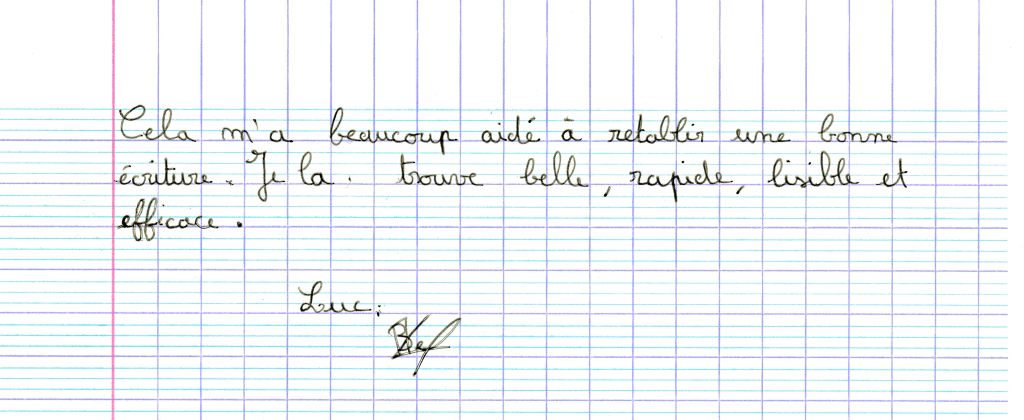 Cela m'a beaucoup aidé à retablir une bonne
écriture. Je la. trouve belle, rapide, lisible et
efficace.
Luc.